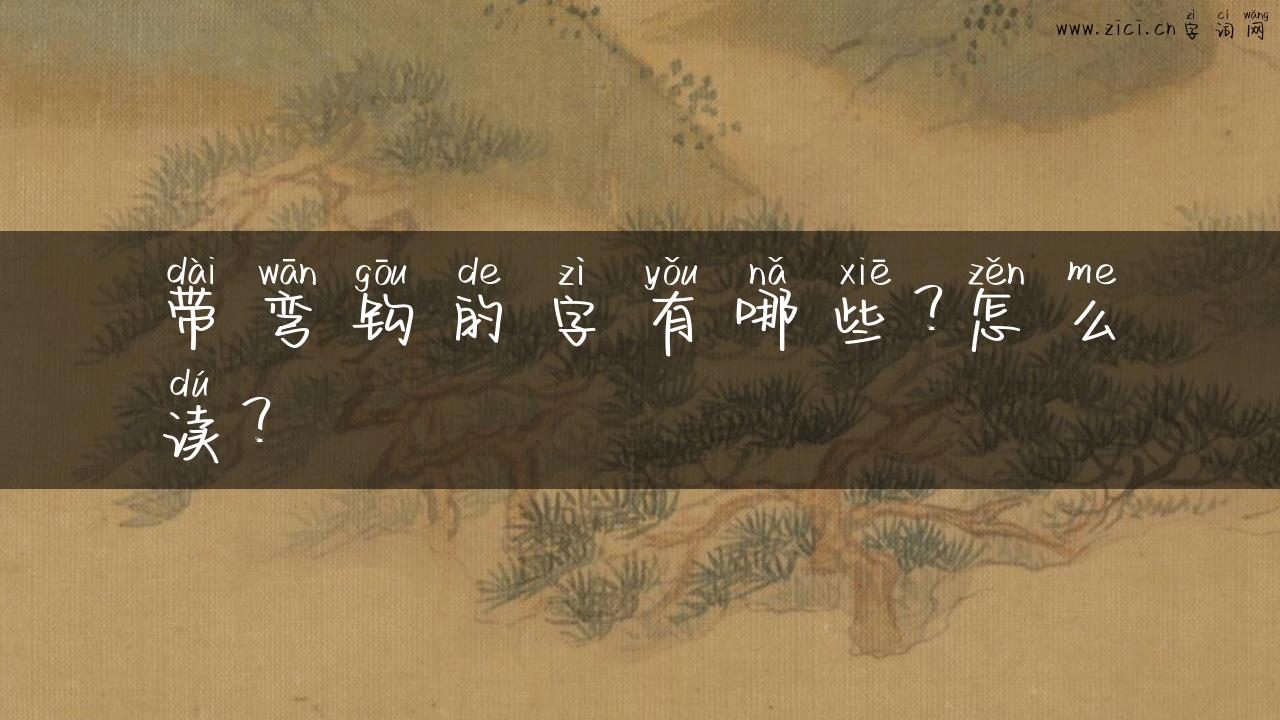 zì cí wǎng
www.zici.cn 字词网
dài wān gōu de zì yǒu nǎ xiē zěn me
带弯钩的字有哪些？怎么
dú
读？